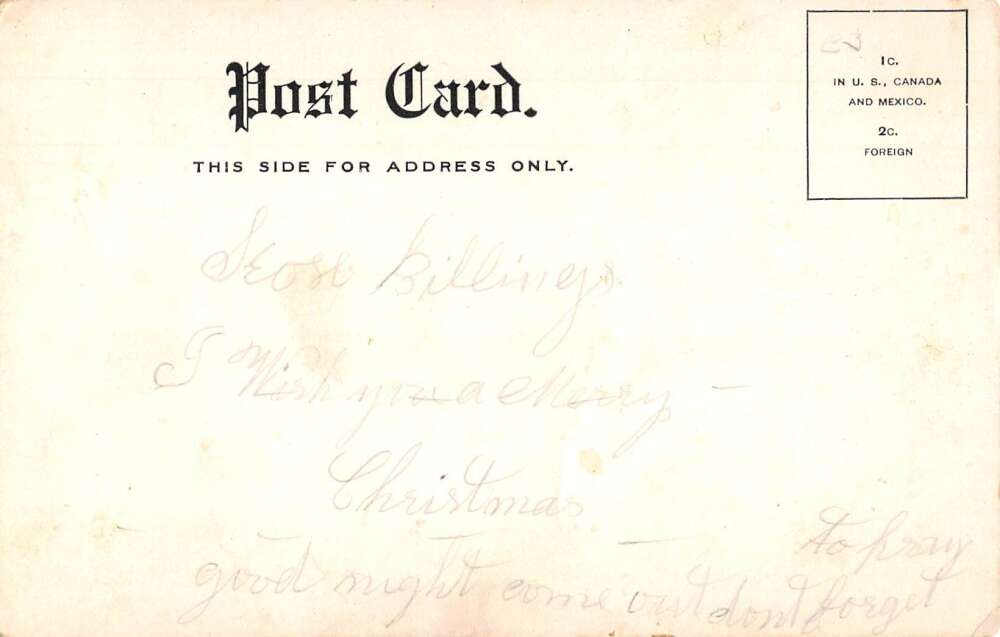 Post Card.
THIS SIDE FOR ADDRESS ONLY.
1C.
IN U. S., CANADA
AND MEXICO.
2C.
FOREIGN
Billings
I Wish you a Merry
Christmas
to pray
good night come out dont forget